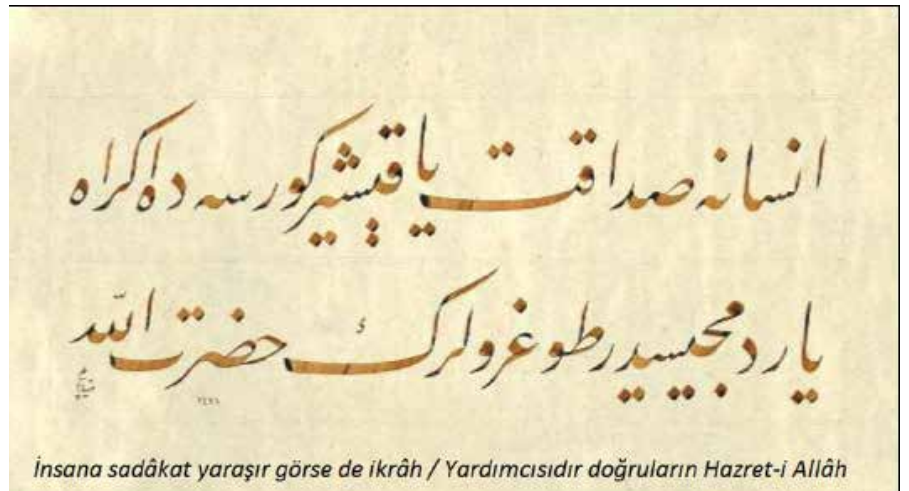 انسانه صداقت یاقیشیر کورسه ده اکراه
یاردمجیسیدر طوغرولرڭ حضرت الله
İnsana sadâkat yaraşır görse de ikrâh / Yardımcısıdır doğruların Hazret-i Allâh